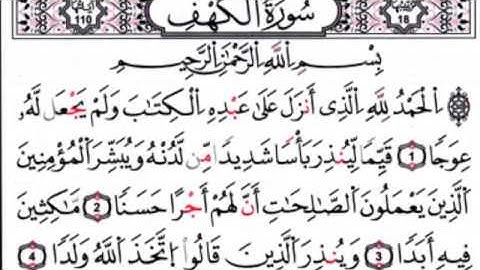 آياتها 110 سُورَةُ الْكَهْفِ ترتيبها 18
بِسْمِ اللَّهِ الرَّحْمَٰنِ الرَّحِيمِ
اِلْحَمْدُ لِلَّهِ الَّذِى أَنزَلَ عَلَىٰ عَبْدِهِ اِلْكِتَابَ وَلَمْ يَجْعَل لَّهُ
عِوَجًا 1 قَيِّمًا لِّيُنذِرَ بَأْسًا شَدِيدًا مِّن لَّدُنْهُ وَيُبَشِّرَ اَلْمُؤْمِنِينَ
اَلَّذِينَ يَعْمَلُونَ اَلصَّالِحَاتِ أَنَّ لَهُمْ أَجْرًا حَسَنًا 2 مَاكِثِينَ
فِيهِ أَبَدًا 3 وَيُنذِرَ اَلَّذِينَ قَالُوا اِتَّخَذَ اَللَّهُ وَلَدًا 4